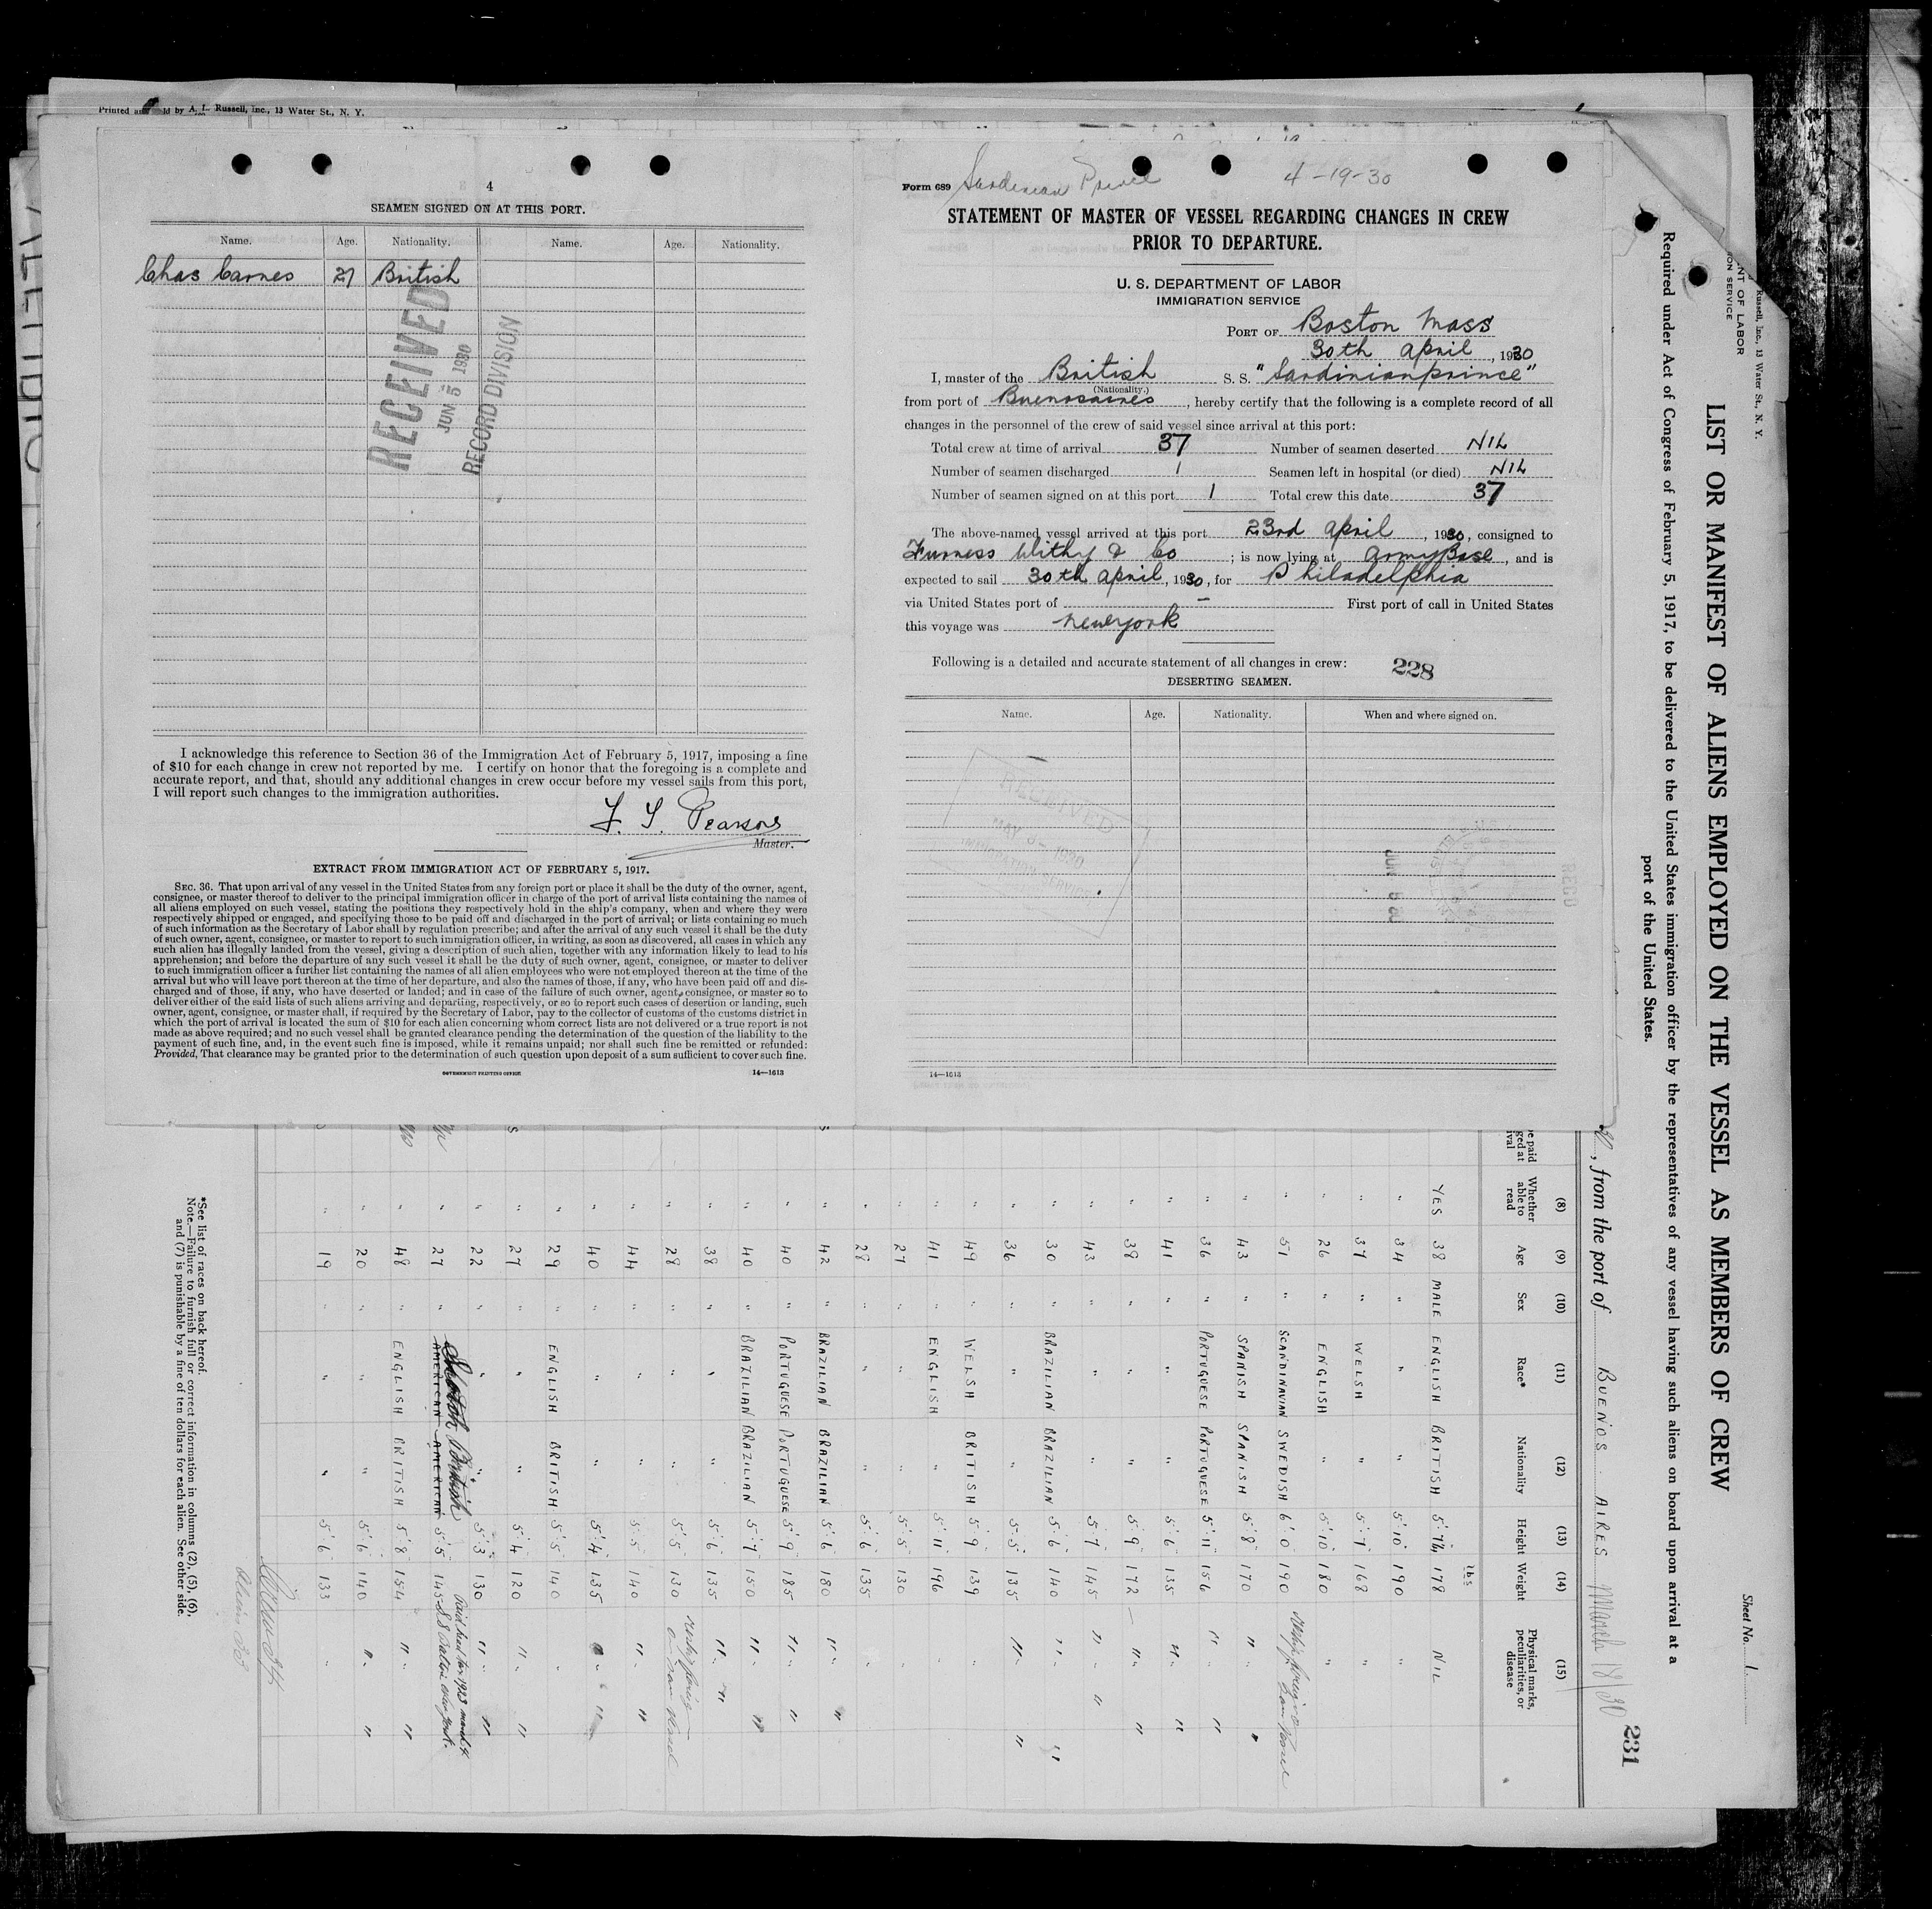 Printed and sold by A. L. Russell, Inc., 13 Water St., N. Y.
4
SEAMEN SIGNED ON AT THIS PORT.
Name. Age. Nationality. Name. Age. Nationality.
Chas Carnes 27 British
RECEIVED
JUN 5 1930
RECORD DIVISION
I acknowledge this reference to Section 36 of the Immigration Act of February 5, 1917, imposing a fine
of $10 for each change in crew not reported by me. I certify on honor that the foregoing is a complete and
accurate report, and that, should any additional changes in crew occur before my vessel sails from this port,
I will report such changes to the immigration authorities.
Pearsons
Master.
EXTRACT FROM IMMIGRATION ACT OF FEBRUARY 5, 1917.
SEC. 36. That upon arrival of any vessel in the United States from any foreign port or place it shall be the duty of the owner, agent,
consignee, or master thereof to deliver to the principal immigration officer in charge of the port of arrival lists containing the names of
all aliens employed on such vessel, stating the positions they respectively hold in the ship's company, when and where they were
respectively shipped or engaged, and specifying those to be paid off and discharged in the port of arrival; or lists containing so much
of such information as the Secretary of Labor shall by regulation prescribe; and after the arrival of any such vessel it shall be the duty
of such owner, agent, consignee, or master to report to such immigration officer, in writing, as soon as discovered, all cases in which any
such alien has illegally landed from the vessel, giving a description of such alien, together with any information likely to lead to his
apprehension; and before the departure of any such vessel it shall be the duty of such owner, agent, consignee, or master to deliver
to such immigration officer a further list containing the names of all alien employees who were not employed thereon at the time of the
arrival but who will leave port thereon at the time of her departure, and also the names of those, if any, who have been paid off and dis-
charged and of those, if any, who have deserted or landed; and in case of the failure of such owner, agent, consignee, or master so to
deliver either of the said lists of such aliens arriving and departing, respectively, or so to report such cases of desertion or landing, such
owner, agent, consignee, or master shall, if required by the Secretary of Labor, pay to the collector of customs of the customs district in
which the port of arrival is located the sum of $10 for each alien concerning whom correct lists are not delivered or a true report is not
made as above required; and no such vessel shall be granted clearance pending the determination of the question of the liability to the
payment of such fine, and, in the event such fine is imposed, while it remains unpaid; nor shall such fine be remitted or refunded:
Provided, That clearance may be granted prior to the determination of such question upon deposit of a sum sufficient to cover such fine.
GOVERNMENT PRINTING OFFICE 14—1613
Form 689 Sardinian Prince 4-19-30
STATEMENT OF MASTER OF VESSEL REGARDING CHANGES IN CREW
PRIOR TO DEPARTURE.
U. S. DEPARTMENT OF LABOR
IMMIGRATION SERVICE
PORT OF Boston Mass
30th April, 1930
I, master of the British S. S. "Sardinianprince"
(Nationality.)
from port of Buenosaires, hereby certify that the following is a complete record of all
changes in the personnel of the crew of said vessel since arrival at this port:
Total crew at time of arrival 37 Number of seamen deserted NIL
Number of seamen discharged 1 Seamen left in hospital (or died) NIL
Number of seamen signed on at this port 1 Total crew this date 37
The above-named vessel arrived at this port 23rd April, 1930, consigned to
Furness Withy & Co; is now lying at Army Base, and is
expected to sail 30th April, 1930, for Philadelphia
via United States port of — First port of call in United States
this voyage was Newyork
Following is a detailed and accurate statement of all changes in crew: 228
DESERTING SEAMEN.
Name. Age. Nationality. When and where signed on.
RECEIVED
MAY 3 - 1930
IMMIGRATION SERVICE
14—1613
Russell, Inc., 13 Water St., N. Y.
NT OF LABOR
ON SERVICE
Sheet No. 1
LIST OR MANIFEST OF ALIENS EMPLOYED ON THE VESSEL AS MEMBERS OF CREW
Required under Act of Congress of February 5, 1917, to be delivered to the United States immigration officer by the representatives of any vessel having such aliens on board upon arrival at a
port of the United States.
231
, from the port of BUENOS AIRES March 18/30
(8) (9) (10) (11) (12) (13) (14) (15)
Whether able to read Age Sex Race* Nationality Height Weight Physical marks, peculiarities, or disease
lbs
YES 38 MALE ENGLISH BRITISH 5' 7½ 178 NIL
" 34 " " " 5' 10" 190 "
" 37 " WELSH " 5' 7" 168 "
" 26 " ENGLISH " 5' 10" 180 "
" 51 " SCANDINAVIAN SWEDISH 6' 0" 190
" 43 " SPANISH SPANISH 5' 8" 170 "
" 36 " PORTUGUESE PORTUGUESE 5' 11" 156 "
" 41 " " " 5' 6" 135 "
" 38 " " " 5' 9" 172 "
" 43 " " " 5' 7" 145 "
" 30 " BRAZILIAN BRAZILIAN 5' 6" 140 "
" 36 " " " 5' 5" 135 "
" 49 " WELSH BRITISH 5' 9" 139 "
" 41 " ENGLISH " 5' 11" 196 "
" 27 " " " 5' 5" 130 "
" 28 " " " 5' 6" 135 "
" 42 " BRAZILIAN BRAZILIAN 5' 6" 180 "
" 40 " PORTUGUESE PORTUGUESE 5' 9" 185 "
" 40 " BRAZILIAN BRAZILIAN 5' 7" 150 "
" 38 " " " 5' 6" 135 "
" 28 " " " 5' 5" 130
" 44 " " " 5' 5" 140 "
" 40 " " " 5' 4" 135 "
" 29 " ENGLISH BRITISH 5' 5" 140 "
" 27 " " " 5' 4" 120 "
" 22 " " " 5' 3" 130 "
" 27 " Scotch British AMERICAN AMERICAN 5' 5" 145
" 48 " ENGLISH BRITISH 5' 8" 154 "
" 20 " " " 5' 6" 140 "
" 19 " " " 5' 6" 133 "
*See list of races on back hereof.
Note.—Failure to furnish full or correct information in columns (2), (5), (6),
and (7) is punishable by a fine of ten dollars for each alien. See other side.